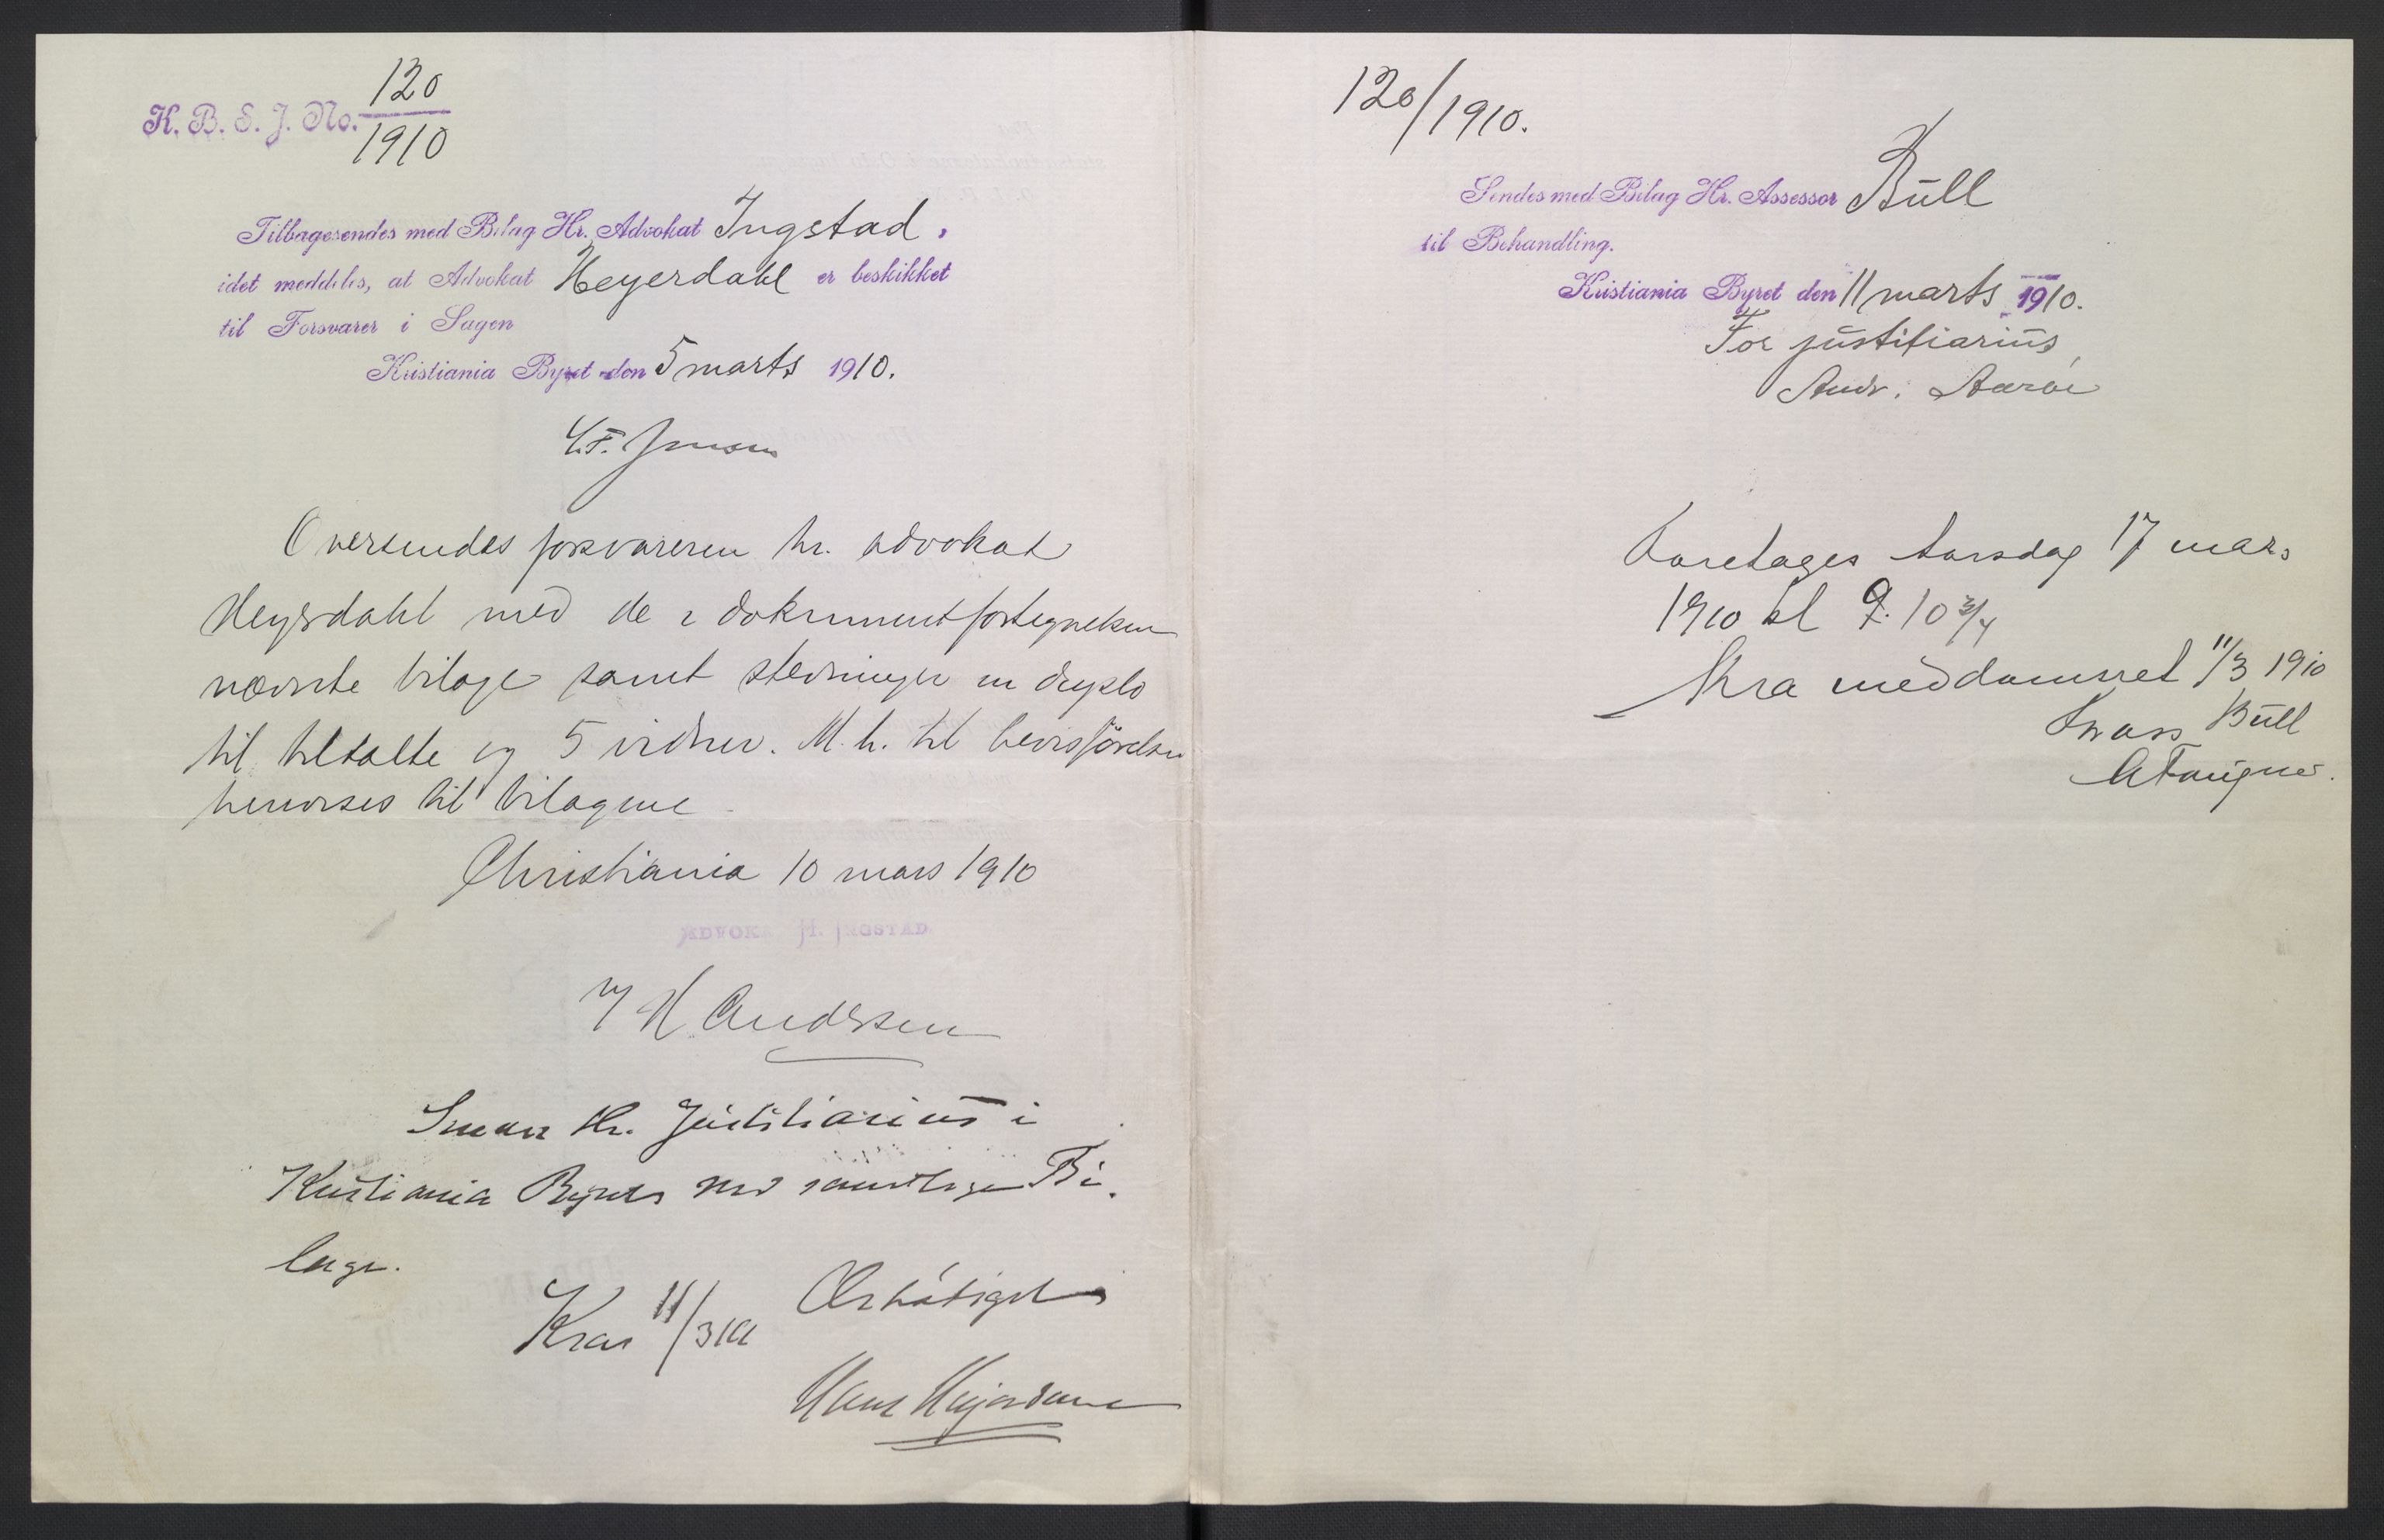 K. B. S. J. No. 120
1910
Tilbagesendes med Bilag Hr. Advokat Ingstad,
idet meddeles, at Advokat Heyerdahl er beskikket
til Forsvarer i Sagen
Kristiania Byret den 5 marts 1910.
Oversendes forsvareren hr. advokat
Heyerdahl med de i dokumentfortegnelsen
nævnte bilage samt stevninger in duplo
til tiltalte og 5 vidner. M. h. til bevisførelsen
henvises til bilagene
Christiania 10 mars 1910
ADVOKAT H. INGSTAD
H Andersen
Hr. Justitiarius i
Kristiania Byret med samtlige Bi-
lage.
Kra 11/3 10 Ærbødigst
Hans Heyerdahl
120/1910.
Sendes med Bilag Hr. Assessor Bull
til Behandling.
Kristiania Byret den 11 marts 1910.
For justitiarius
Andr. Aarøe
Foretages torsdag 17 mars
1910 kl 9. 10 3/4
Kra meddomsret 11/3 1910
Bull